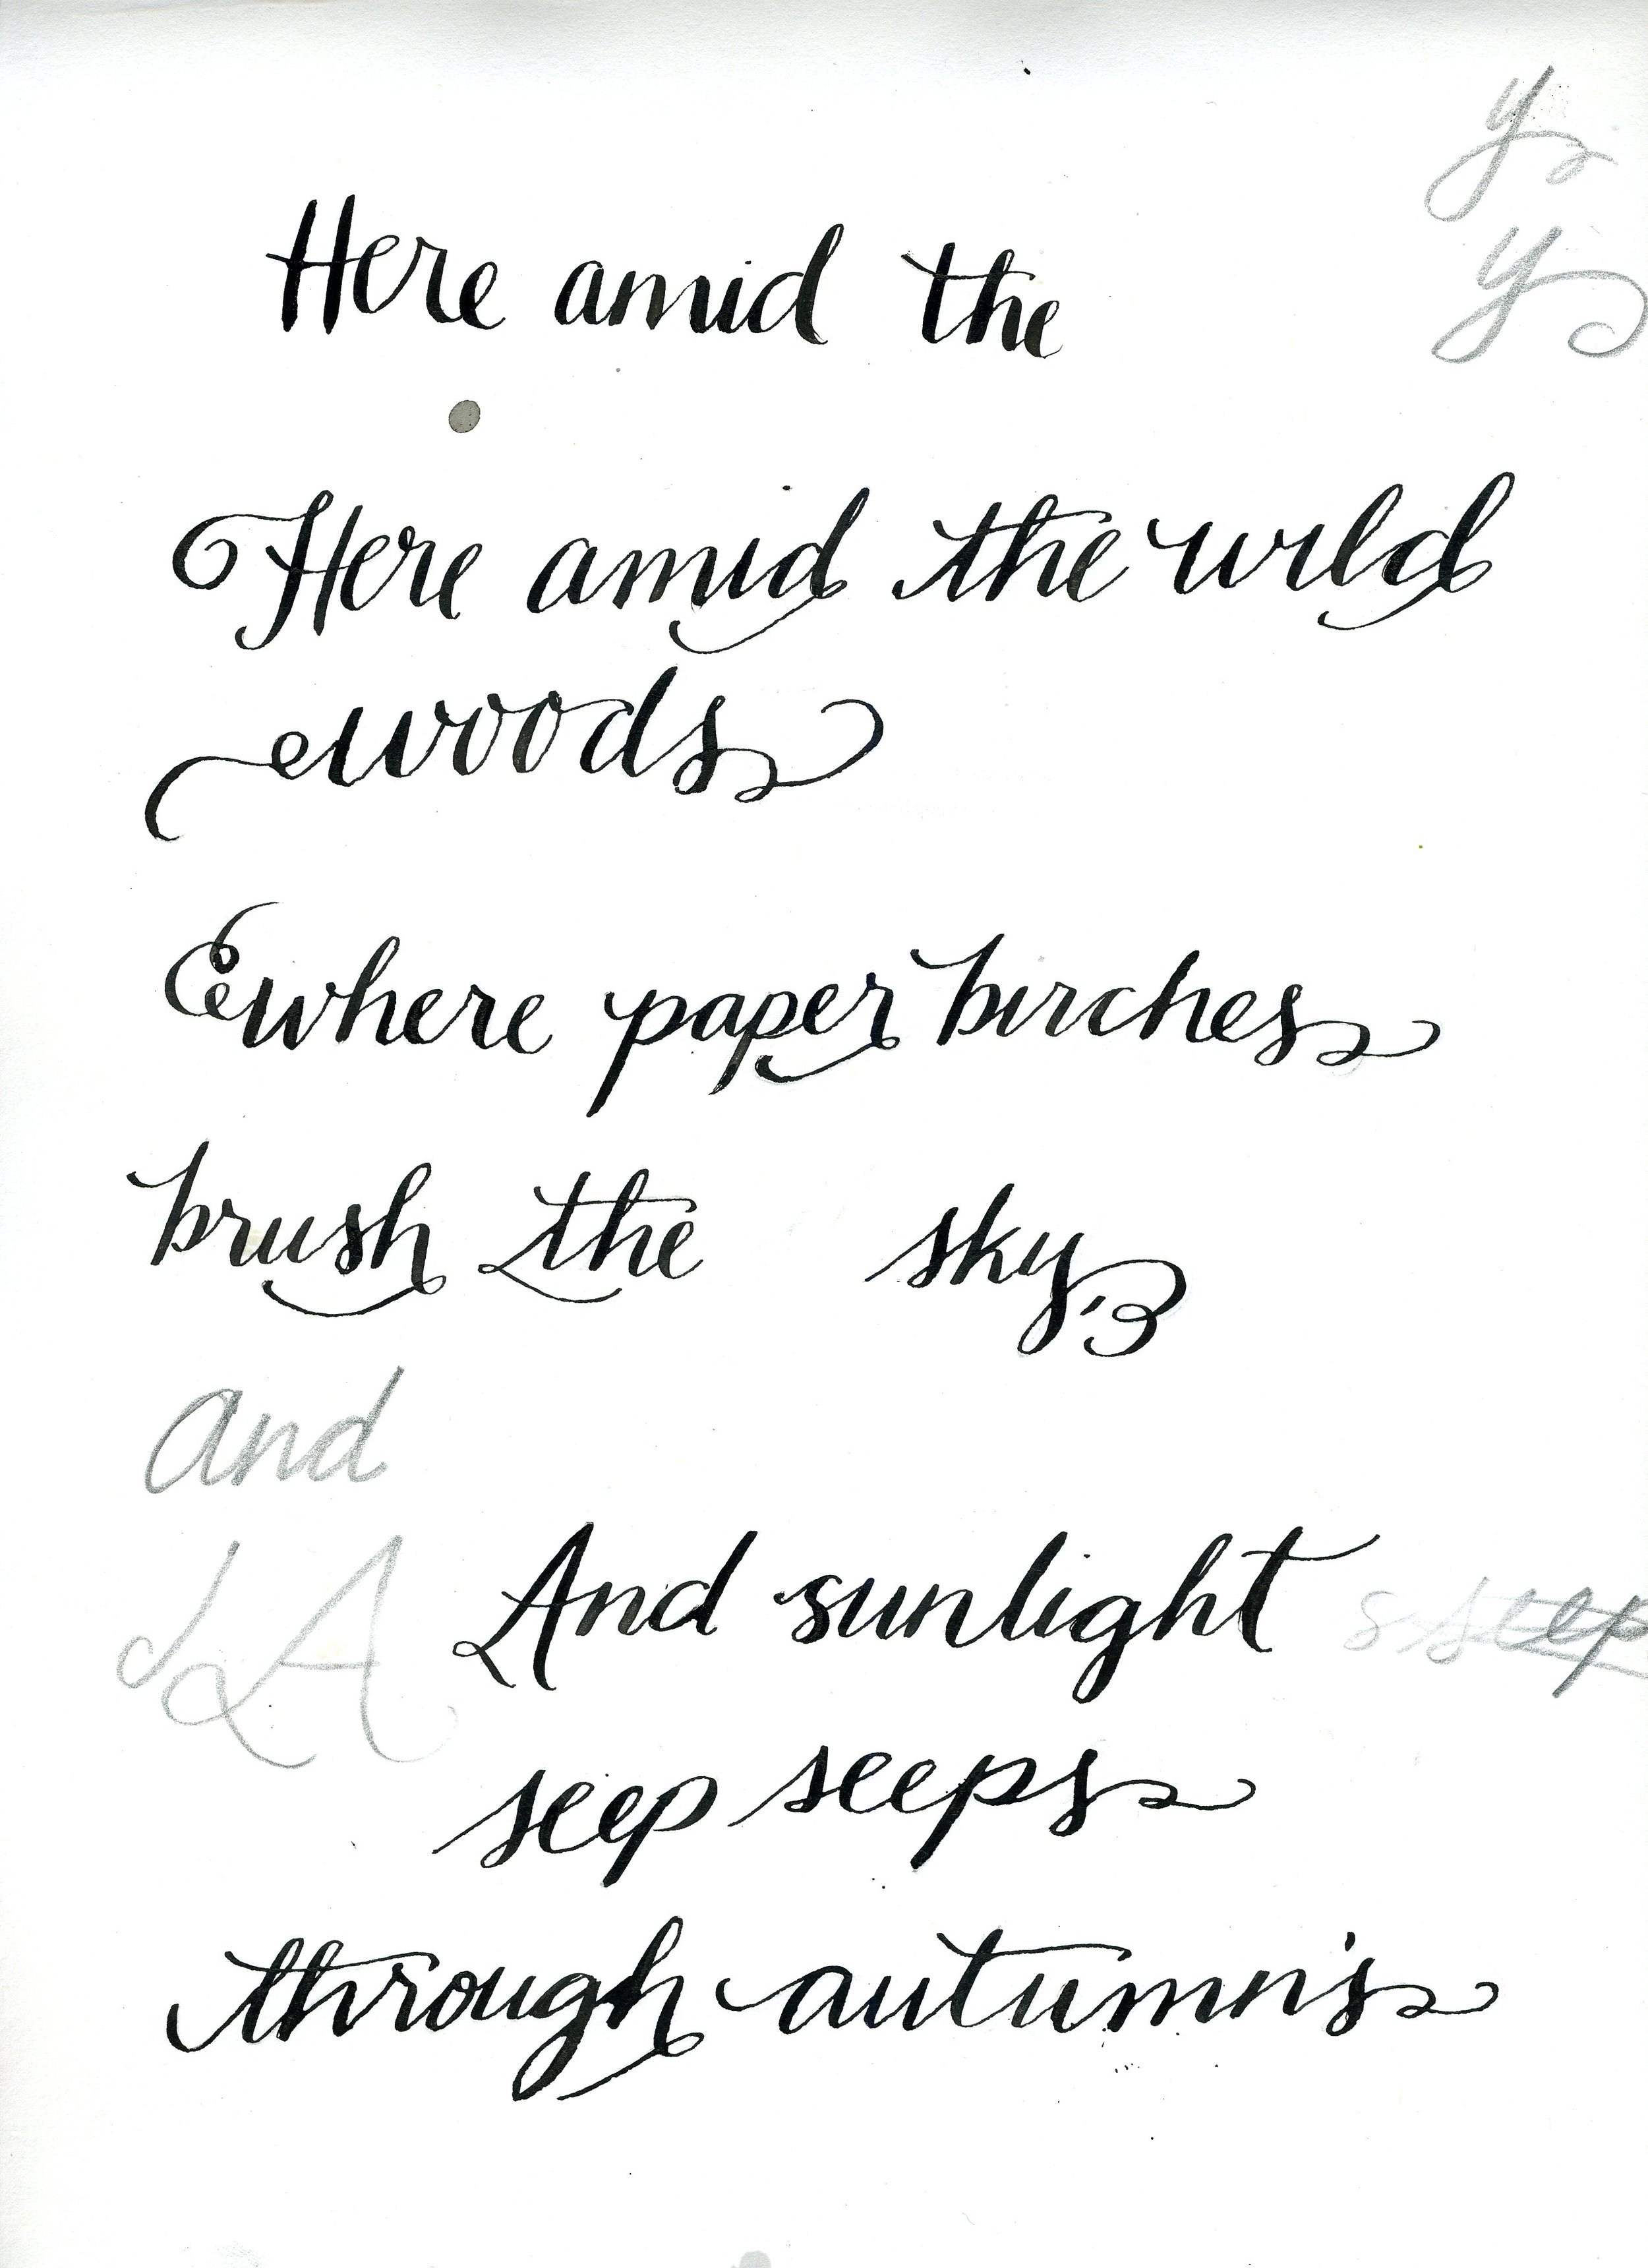 y
y
Here amid the
Here amid the wild
woods
where paper birches
brush the sky,
and
A And sunlight s seep
seep seeps
through autumn's